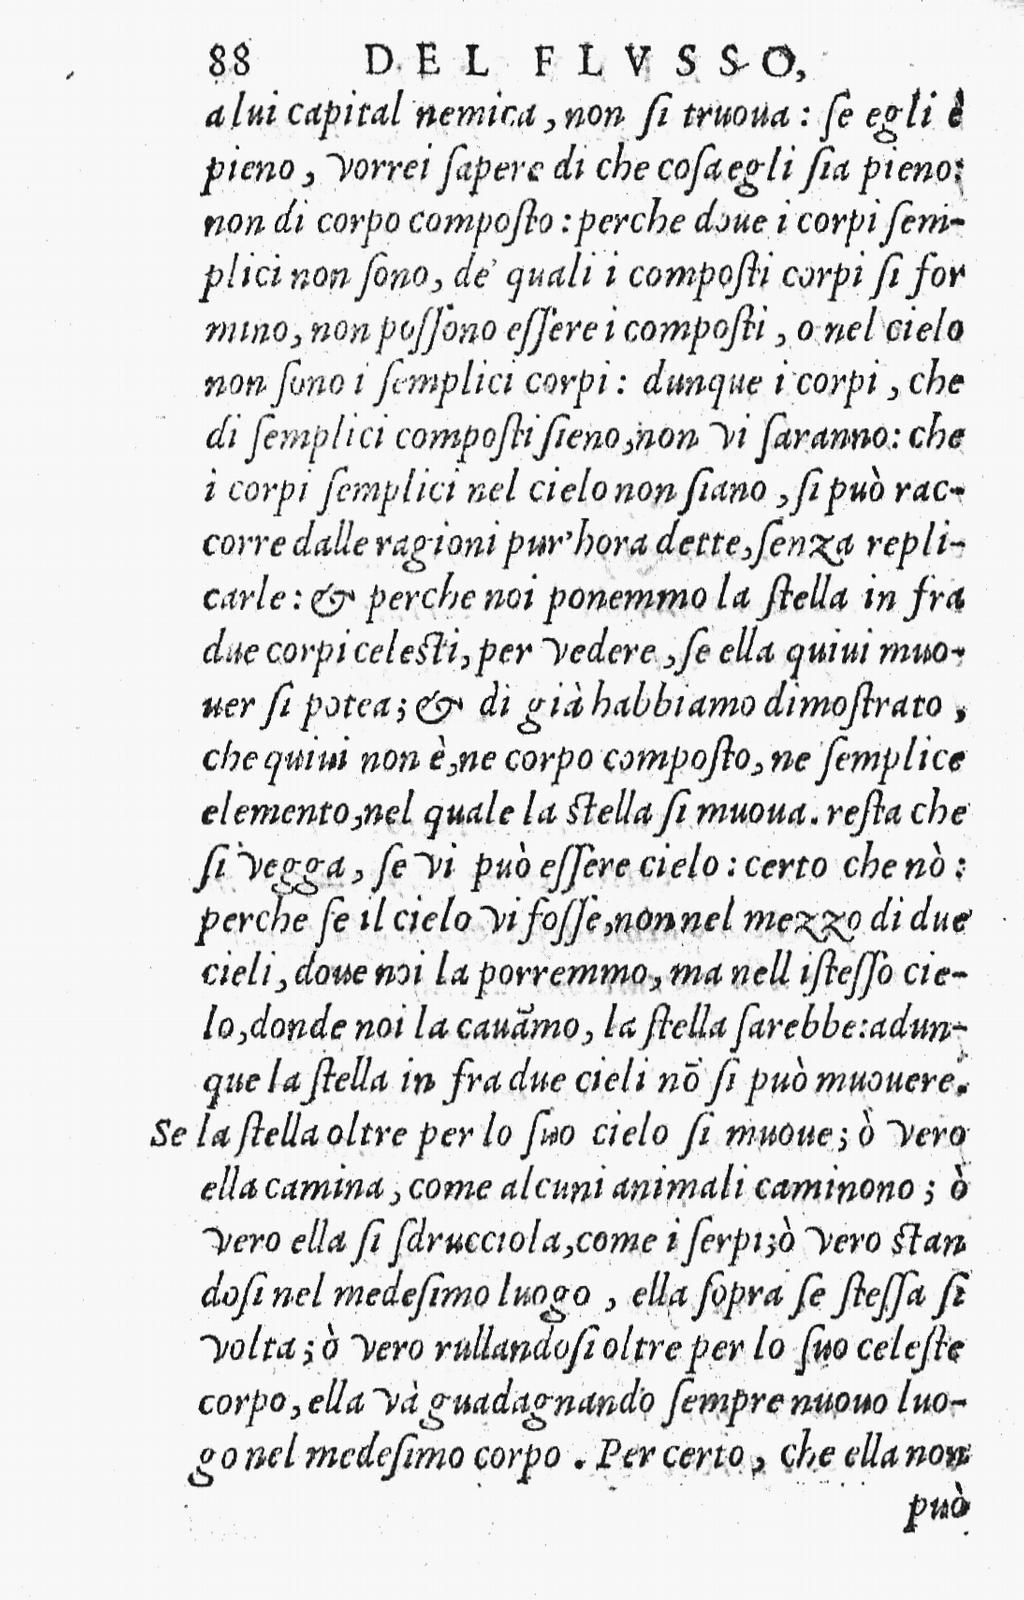 88 DEL FLVSSO,
a lui capital nemica, non ſi truoua: ſe egli è
pieno, vorrei ſapere di che coſa egli ſia pieno:
non di corpo compoſto: perche doue i corpi ſem-
plici non ſono, de' quali i compoſti corpi ſi for
mino, non poſſono eſſere i compoſti, o nel cielo
non ſono i ſemplici corpi: dunque i corpi, che
di ſemplici compoſti ſieno, non vi ſaranno: che
i corpi ſemplici nel cielo non ſiano, ſi può rac-
corre dalle ragioni pur'hora dette, ſenza repli-
carle: & perche noi ponemmo la ſtella in fra
due corpi celeſti, per vedere, ſe ella quiui muo-
uer ſi potea; & di già habbiamo dimoſtrato,
che quiui non è, ne corpo compoſto, ne ſemplice
elemento, nel quale la ſtella ſi muoua. reſta che
ſi vegga, ſe vi può eſſere cielo: certo che nò:
perche ſe il cielo vi foſſe, non nel mezzo di due
cieli, doue noi la porremmo, ma nell iſteſſo cie-
lo, donde noi la cauāmo, la ſtella ſarebbe: adun-
que la ſtella in fra due cieli nō ſi può muouere.
Se la ſtella oltre per lo ſuo cielo ſi muoue; ò vero
ella camina, come alcuni animali caminono; ò
vero ella ſi ſdrucciola, come i ſerpi; ò vero ſtan
doſi nel medeſimo luogo, ella ſopra ſe ſteſſa ſi
volta; ò vero rullandoſi oltre per lo ſuo celeſte
corpo, ella và guadagnando ſempre nuouo luo-
go nel medeſimo corpo. Per certo, che ella non
può